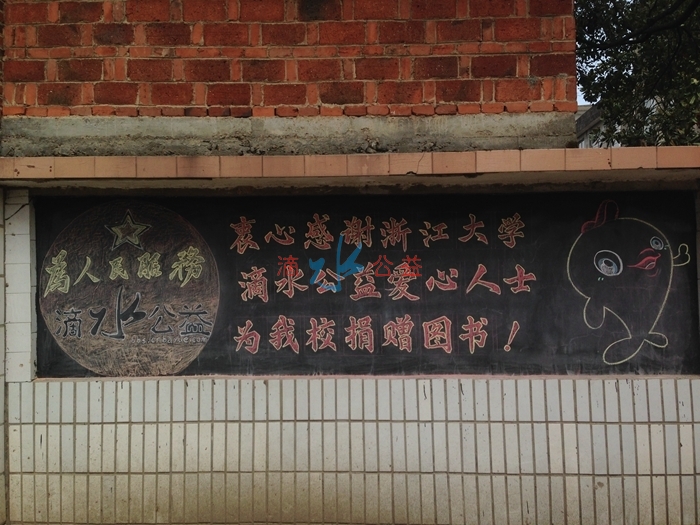 為人民服務
滴水公益
衷心感谢浙江大学
滴水公益爱心人士
为我校捐赠图书！
滴水公益